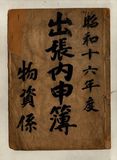 昭和十六年度
出張内申簿
物資係